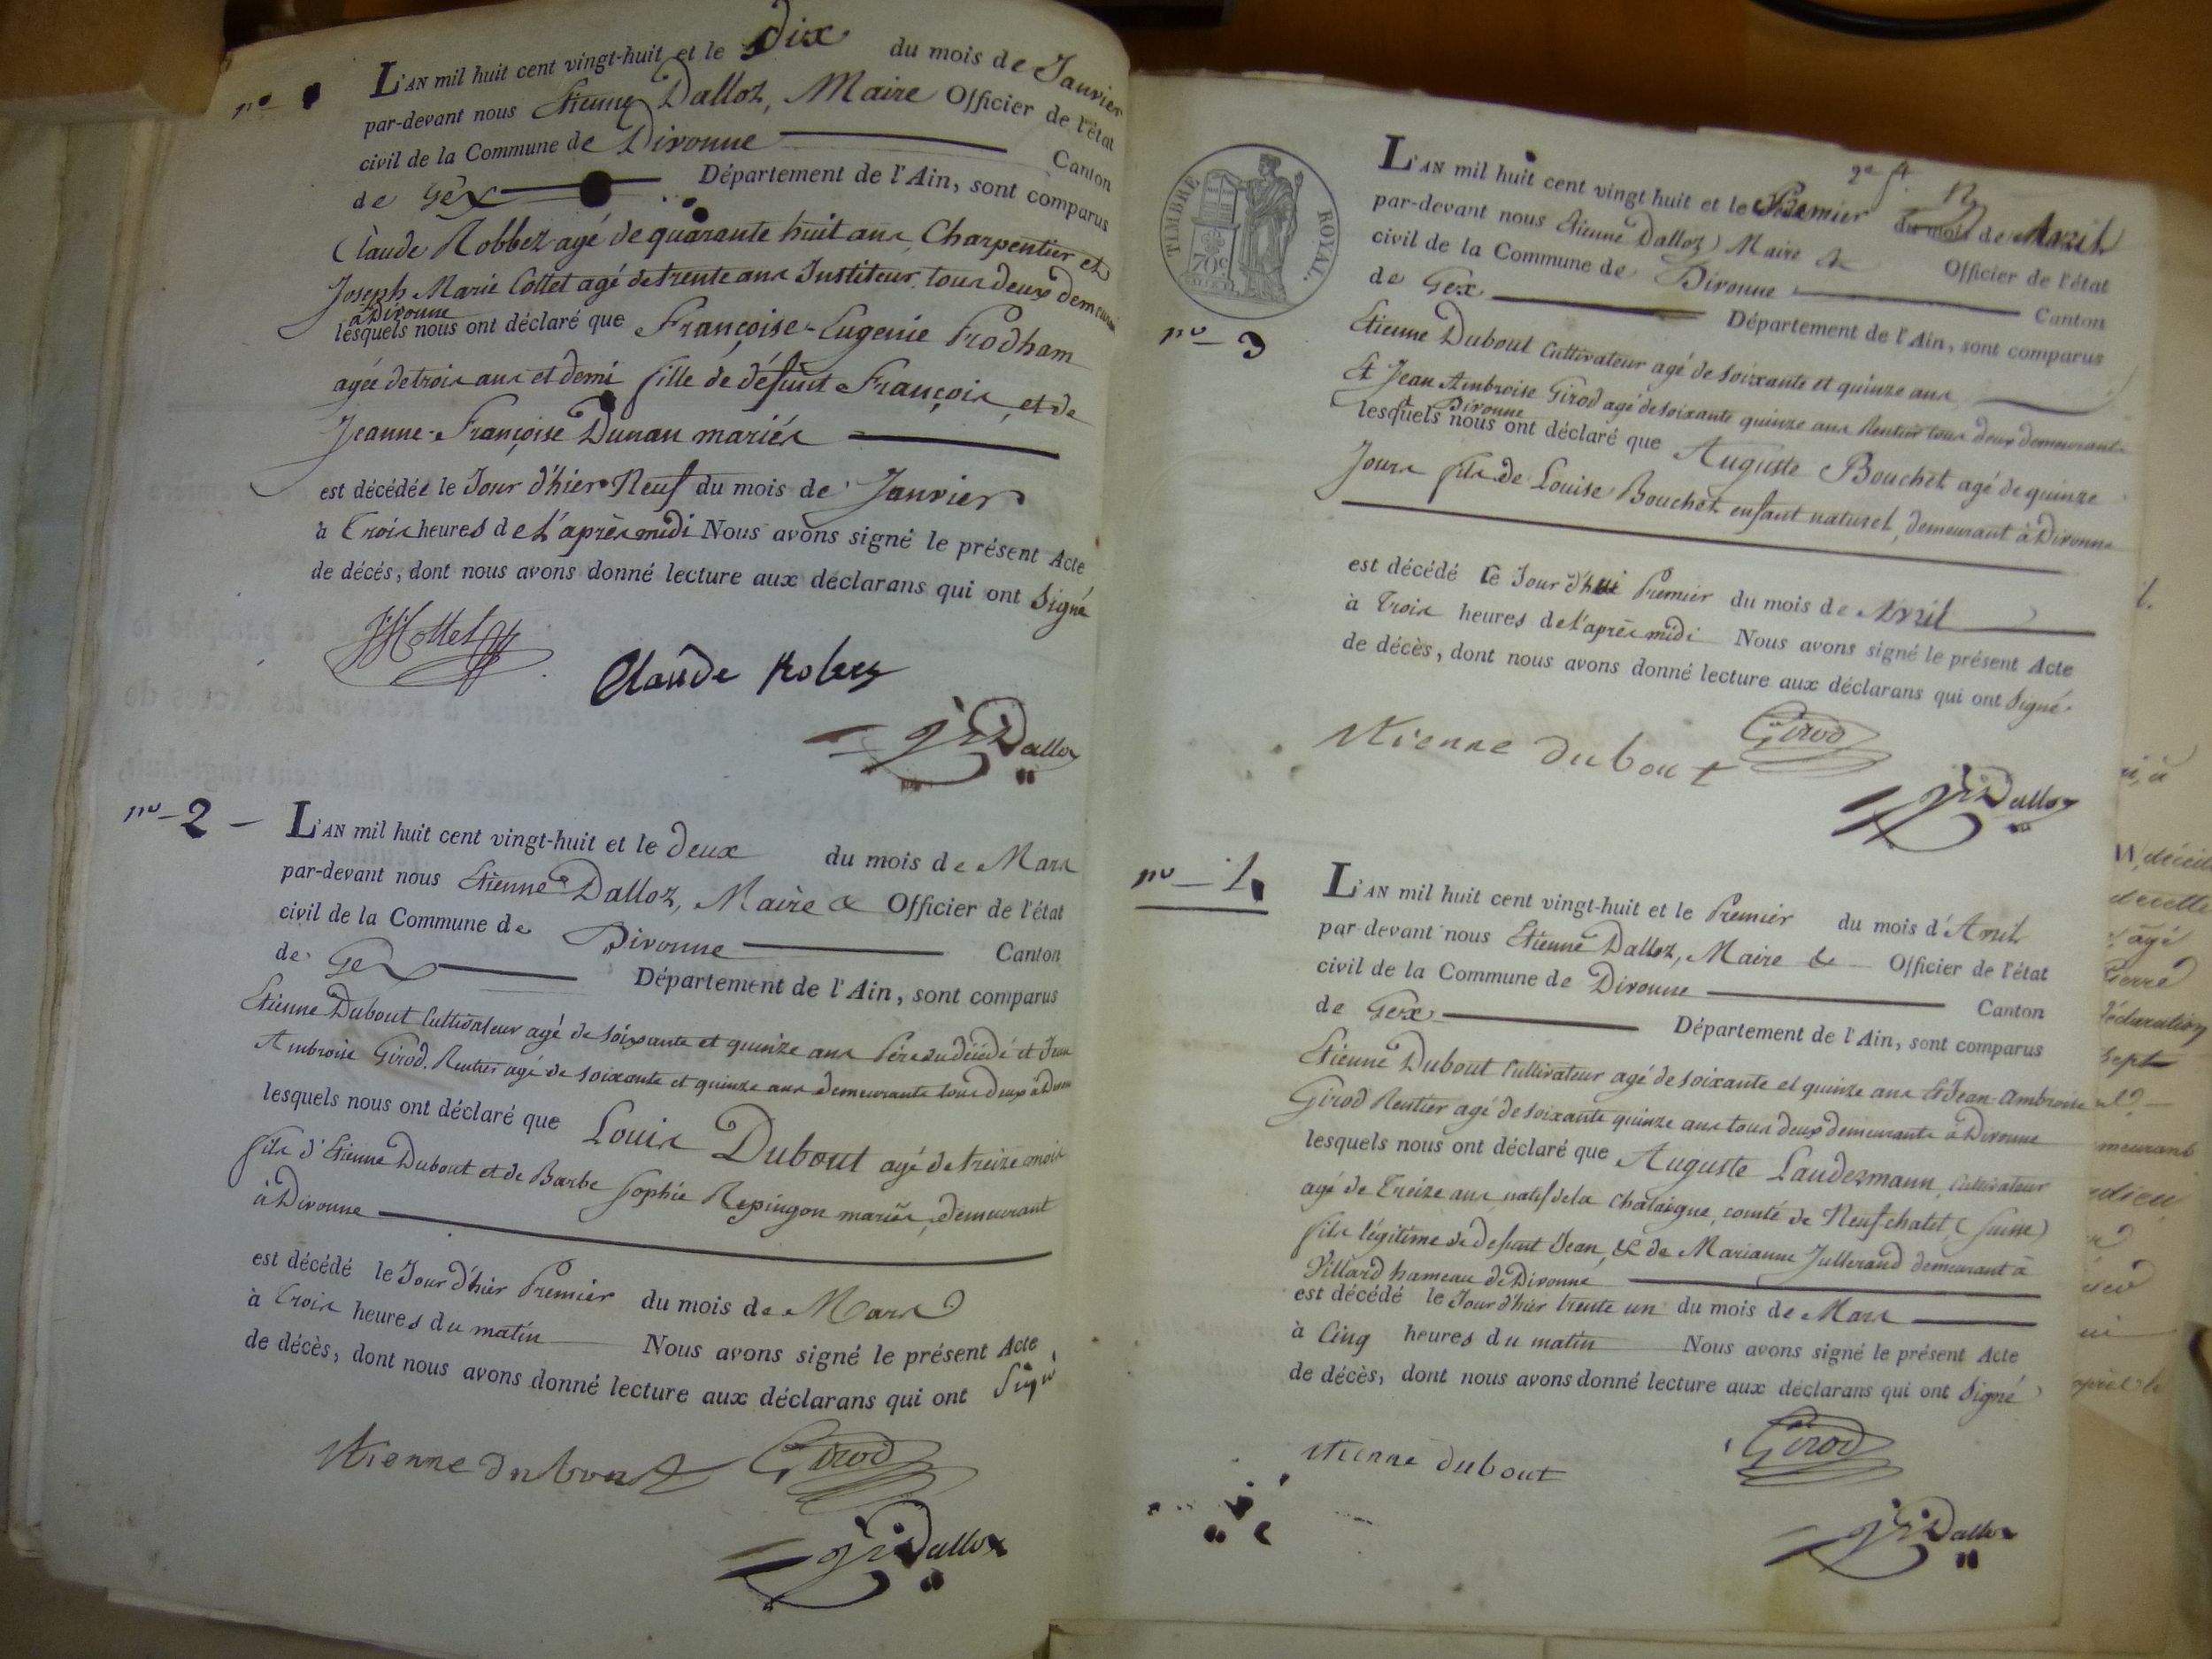 no 1
L'AN mil huit cent vingt-huit et le Dix du mois de Janvier
par-devant nous Etienne Dalloz, Maire Officier de l'état
civil de la Commune de Divonne Canton
de Gex Département de l'Ain, sont comparus
Claude Robbez agé de quarante huit ans, Charpentier et
Joseph Marie Collet agé de trente ans Instituteur, tous deux demeurant
à Divonne
lesquels nous ont déclaré que Françoise-Eugenie Prodham
agée de trois ans et demi fille de défunt François et de
Jeanne-Françoise Dunan mariés
est décédée le Jour d'hier Neuf du mois de Janvier
à Trois heures de l'après midi Nous avons signé le présent Acte
de décés, dont nous avons donné lecture aux déclarans qui ont signé
Claude Robez
Dalloz
no - 2 -
L'AN mil huit cent vingt-huit et le deux du mois de Mars
par-devant nous Etienne Dalloz, Maire & Officier de l'état
civil de la Commune de Divonne Canton
de Gex Département de l'Ain, sont comparus
Etienne Dubout Cultivateur agé de soixante et quinze ans Père du décédé et Jean
Ambroise Girod, Rentier agé de soixante et quinze ans demeurants tous deux à Divonne
lesquels nous ont déclaré que Louis Dubout agé de treize mois
fils d'Etienne Dubout et de Barbe Sophie Repingon mariés, demeurant
à Divonne
est décédé le Jour d'hier Premier du mois de Mars
à Trois heures du matin Nous avons signé le présent Acte
de décès, dont nous avons donné lecture aux déclarans qui ont Signé
etienne dubout Girod
Dalloz
TIMBRE ROYAL.
70c
2e f.
L'AN mil huit cent vingt huit et le Premier du mois de Avril
par-devant nous Etienne Dalloz, Maire & Officier de l'état
civil de la Commune de Divonne Canton
de Gex Département de l'Ain, sont comparus
no - 3
Etienne Dubout Cultivateur agé de soixante et quinze ans
Et Jean Ambroise Girod agé de soixante quinze ans Rentier tous deux demeurants
à Divonne
lesquels nous ont déclaré que Auguste Bouchet agé de quinze
Jours fils de Louise Bouchet enfant naturel, demeurant à Divonne
est décédé le Jour d'hui Premier du mois de Avril
à Trois heures de l'après midi Nous avons signé le présent Acte
de décès, dont nous avons donné lecture aux déclarans qui ont Signé
etienne dubout Girod
Dalloz
no - 4
L'AN mil huit cent vingt-huit et le Premier du mois d'Avril
par devant nous Etienne Dalloz, Maire & Officier de l'état
civil de la Commune de Divonne Canton
de Gex Département de l'Ain, sont comparus
Etienne Dubout Cultivateur agé de soixante et quinze ans Et Jean-Ambroise
Girod Rentier agé de soixante quinze ans tous deux demeurants à Divonne
lesquels nous ont déclaré que Auguste Laudezmann, Cultivateur
agé de Treize ans, natif de la Chataigne, comté de Neufchatel (Suisse)
fils légitime de defunt Jean, & de Marianne Jullerand demeurant à
Villard hameau de Divonne
est décédé le Jour d'hier trente un du mois de Mars
à Cinq heures du matin Nous avons signé le présent Acte
de décès, dont nous avons donné lecture aux déclarans qui ont Signé
etienne dubout Girod
Dalloz